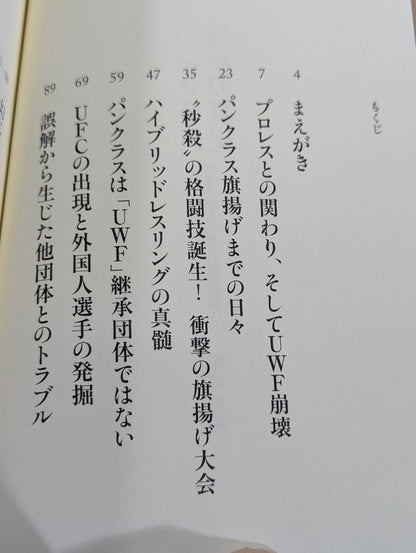 もくじ
4 まえがき
7 プロレスとの関わり、そしてUWF崩壊
23 パンクラス旗揚げまでの日々
35 〝秒殺〟の格闘技誕生! 衝撃の旗揚げ大会
47 ハイブリッドレスリングの真髄
59 パンクラスは「UWF」継承団体ではない
69 UFCの出現と外国人選手の発掘
89 誤解から生じた他団体とのトラブル